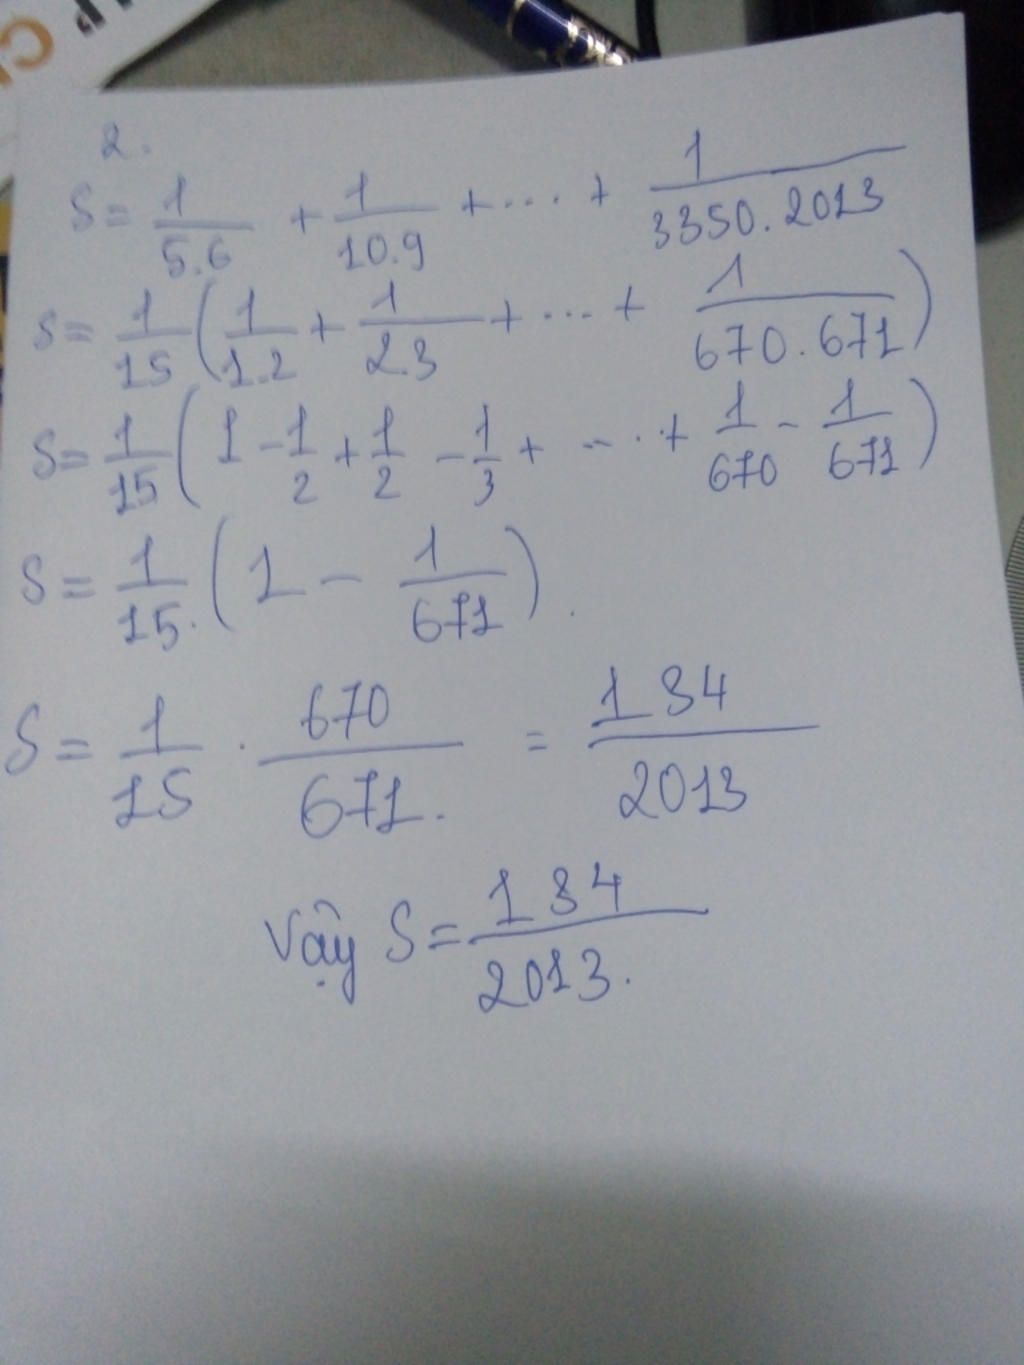 2.
S = 1/5.6 + 1/10.9 + ... + 1/3350.2013
S = 1/15 (1/1.2 + 1/2.3 + ... + 1/670.671)
S = 1/15 (1 - 1/2 + 1/2 - 1/3 + ... + 1/670 - 1/671)
S = 1/15. (1 - 1/671).
S = 1/15 . 670/671. = 134/2013
Vậy S = 134/2013.